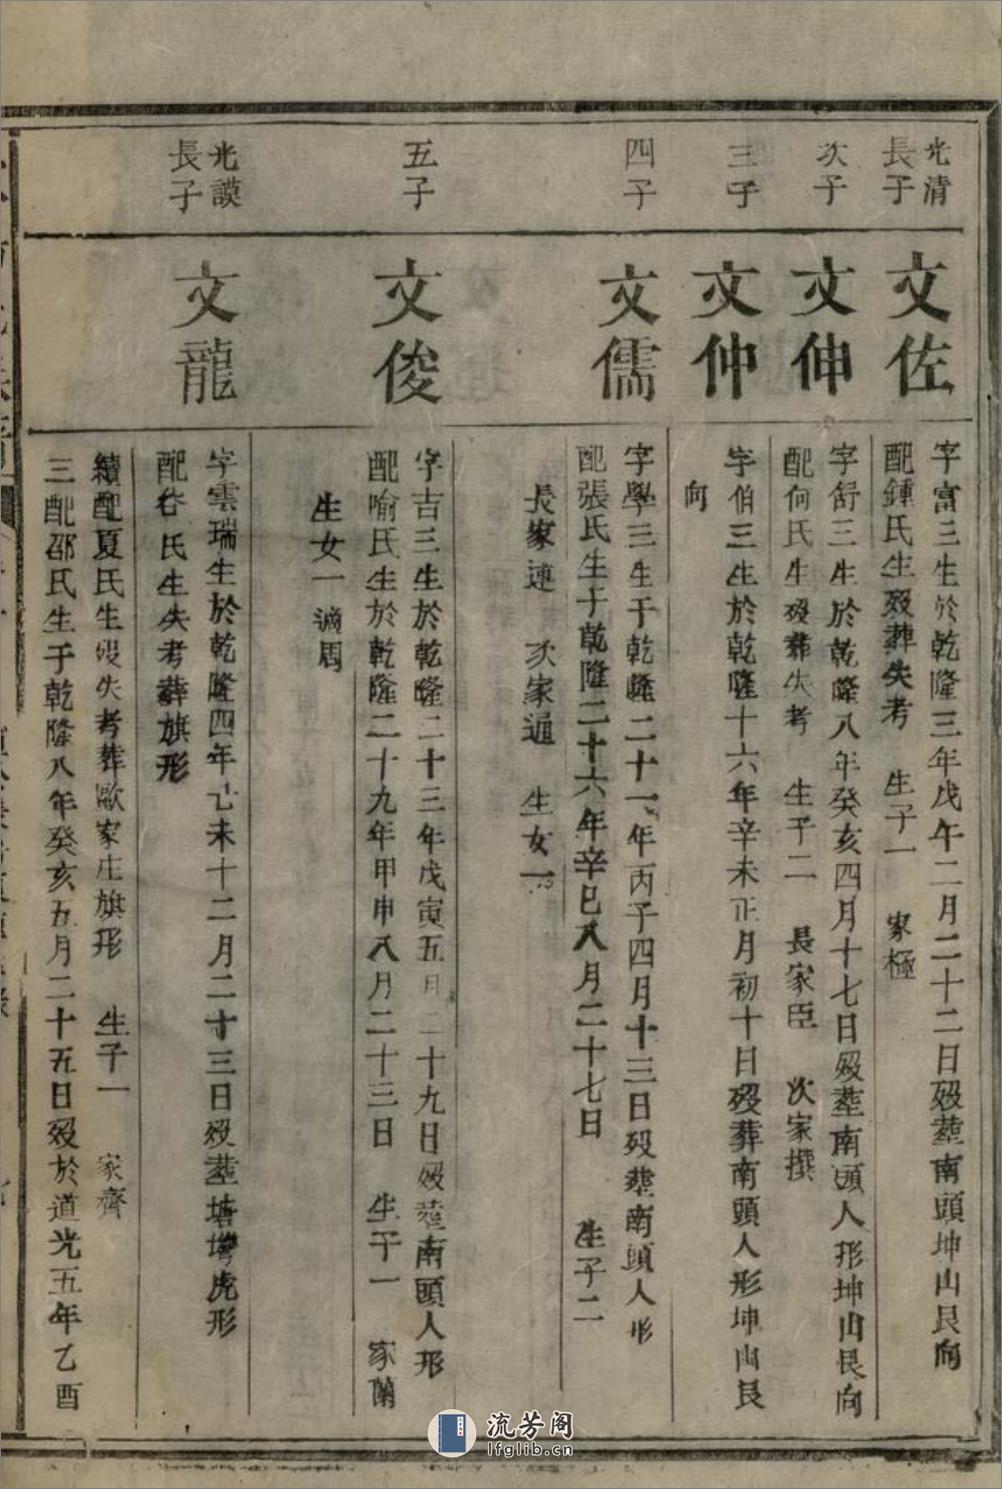 光清
長子
文佐
字富三生於乾隆三年戊午二月二十二日歿塟南頭坤山艮向
配鍾氏生歿葬失考 生子一 家極
次子
文伸
字舒三生於乾隆八年癸亥四月十七日歿塟南頭人形坤山艮向
配何氏生歿葬失考 生子二 長家臣 次家撰
三子
文仲
字伯三生於乾隆十六年辛未正月初十日歿葬南頭人形坤山艮
向
四子
文儒
字學三生于乾隆二十一年丙子四月十三日歿塟南頭人形
配張氏生于乾隆二十六年辛巳八月二十七日 生子二
長家連 次家通 生女一
五子
文俊
字吉三生於乾隆二十三年戊寅五月二十九日歿塟南頭人形
配喻氏生於乾隆二十九年甲申八月二十三日 生子一 家蘭
生女一適周
光謨
長子
文龍
字雲瑞生於乾隆四年己未十二月二十三日歿塟塘塆虎形
配谷氏生失考葬旗形
續配夏氏生歿失考葬歐家庄旗形 生子一 家齊
三配邵氏生于乾隆八年癸亥五月二十五日歿於道光五年乙酉
流芳阁
lfglib.cn